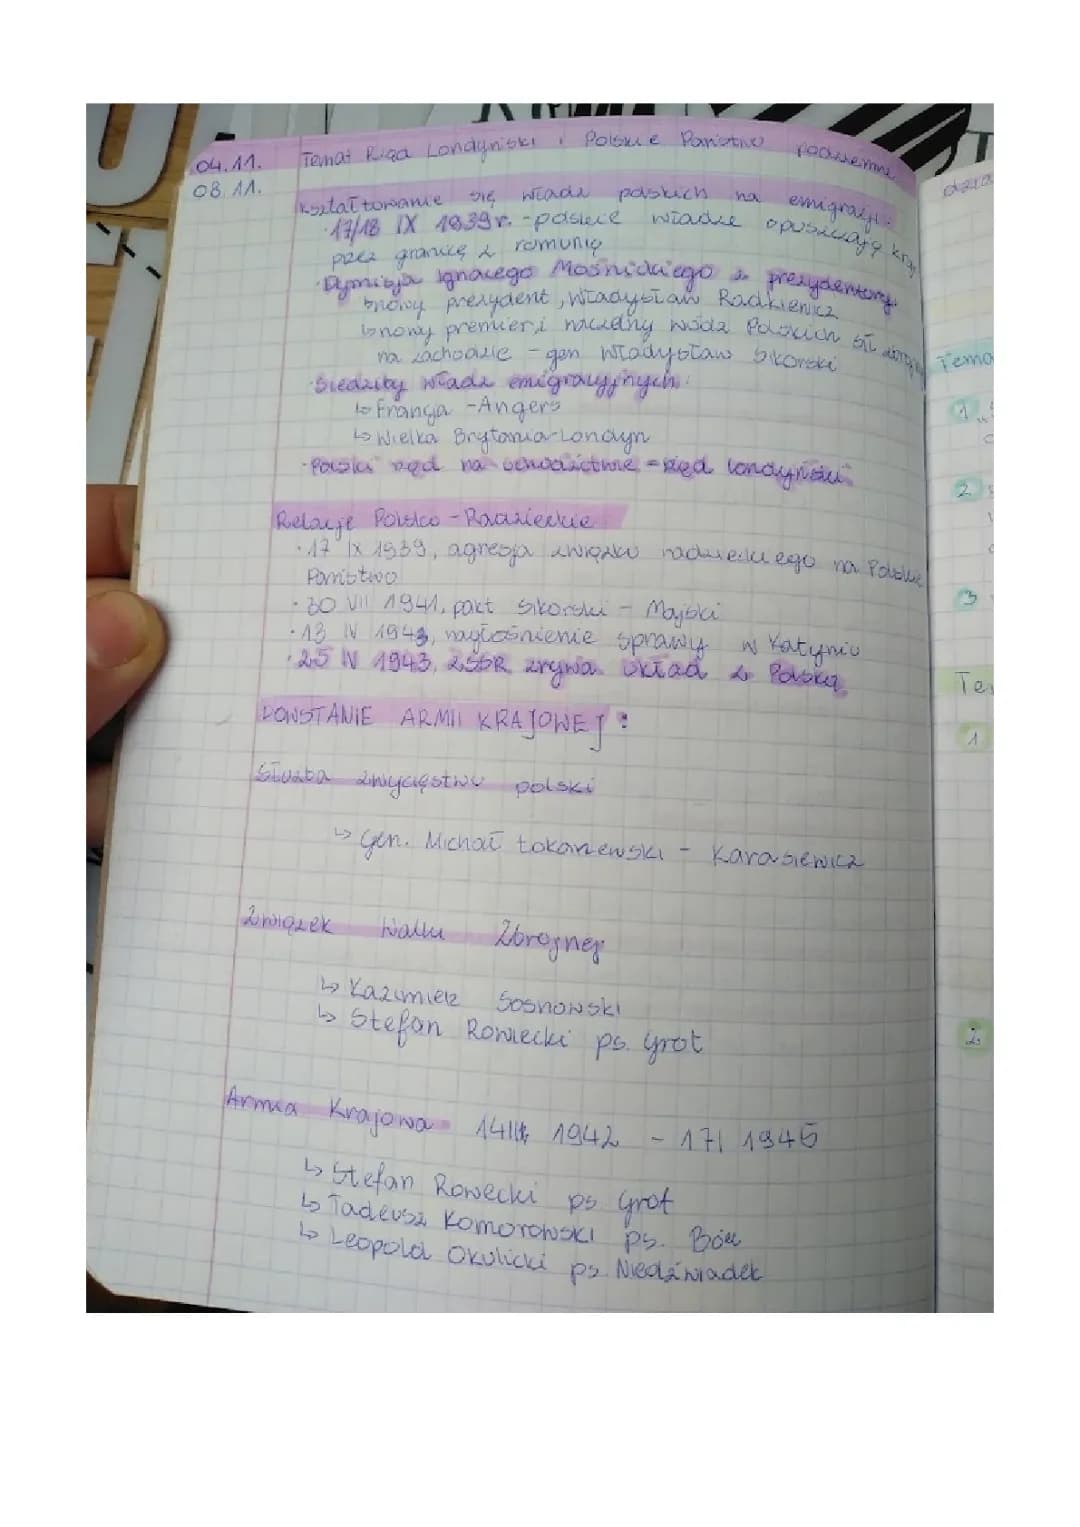 04.11. Temat Rząd Londyński i Polskie Państwo podziemne
08.11.
kształtowanie się władz polskich na emigracji.
· 17/18 IX 1939r. - polskie władze opuszczają kraj
przez granicę z rumunią
· Dymisja Ignacego Mościckiego z prezydentury.
↳ nowy prezydent, Władysław Radkiewicz
↳ nowy premier, i naczelny wódz Polskich sił
na zachodzie - gen Władysław Sikorski
· Siedziby władz emigracyjnych:
↳ Francja - Angers
↳ Wielka Brytania - Londyn
· Polski rząd na uchodźctwie = rząd londyński
Relacje Polsko - Radzieckie
· 17 IX 1939, agresja związku radzieckiego na Polskie
Państwo
· 30 VII 1941, pakt Sikorski - Majski
· 13 IV 1943, nagłośnienie sprawy w Katyniu
· 25 IV 1943, ZSSR zrywa układ z Polską
POWSTANIE ARMII KRAJOWEJ:
Służba zwycięstwu polski
↳ gen. Michał Tokarzewski - Karasiewicz
Związek Walki Zbrojnej
↳ Kazimierz Sosnowski
↳ Stefan Rowiecki ps. grot
Armia Krajowa 14 II 1942 - 17 I 1945
↳ Stefan Rowecki ps grot
↳ Tadeusz Komorowski ps. Bór
↳ Leopold Okulicki ps. Niedźwiadek
Tema
1
2
3
Te
1
2.